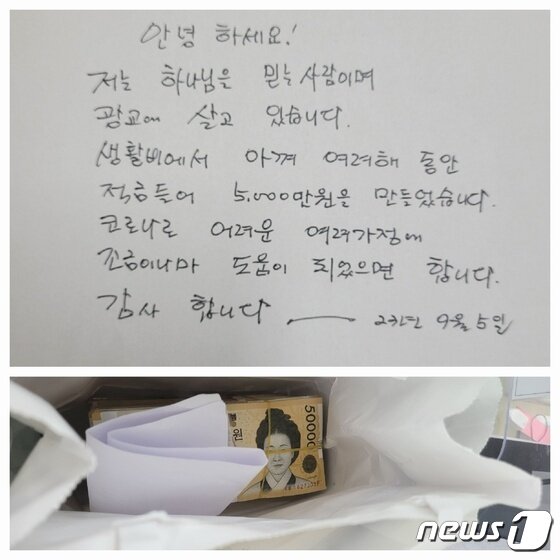 안녕 하세요!
저는 하나님을 믿는 사람이며
광교에 살고 있습니다.
생활비에서 아껴 여려해 동안
적금들어 5.000만원을 만들었습니다.
코로나로 어려운 여려가정에
조금이나마 도움이 되었으면 합니다.
감사 합니다 23년 9월 5일
50000
원
news1